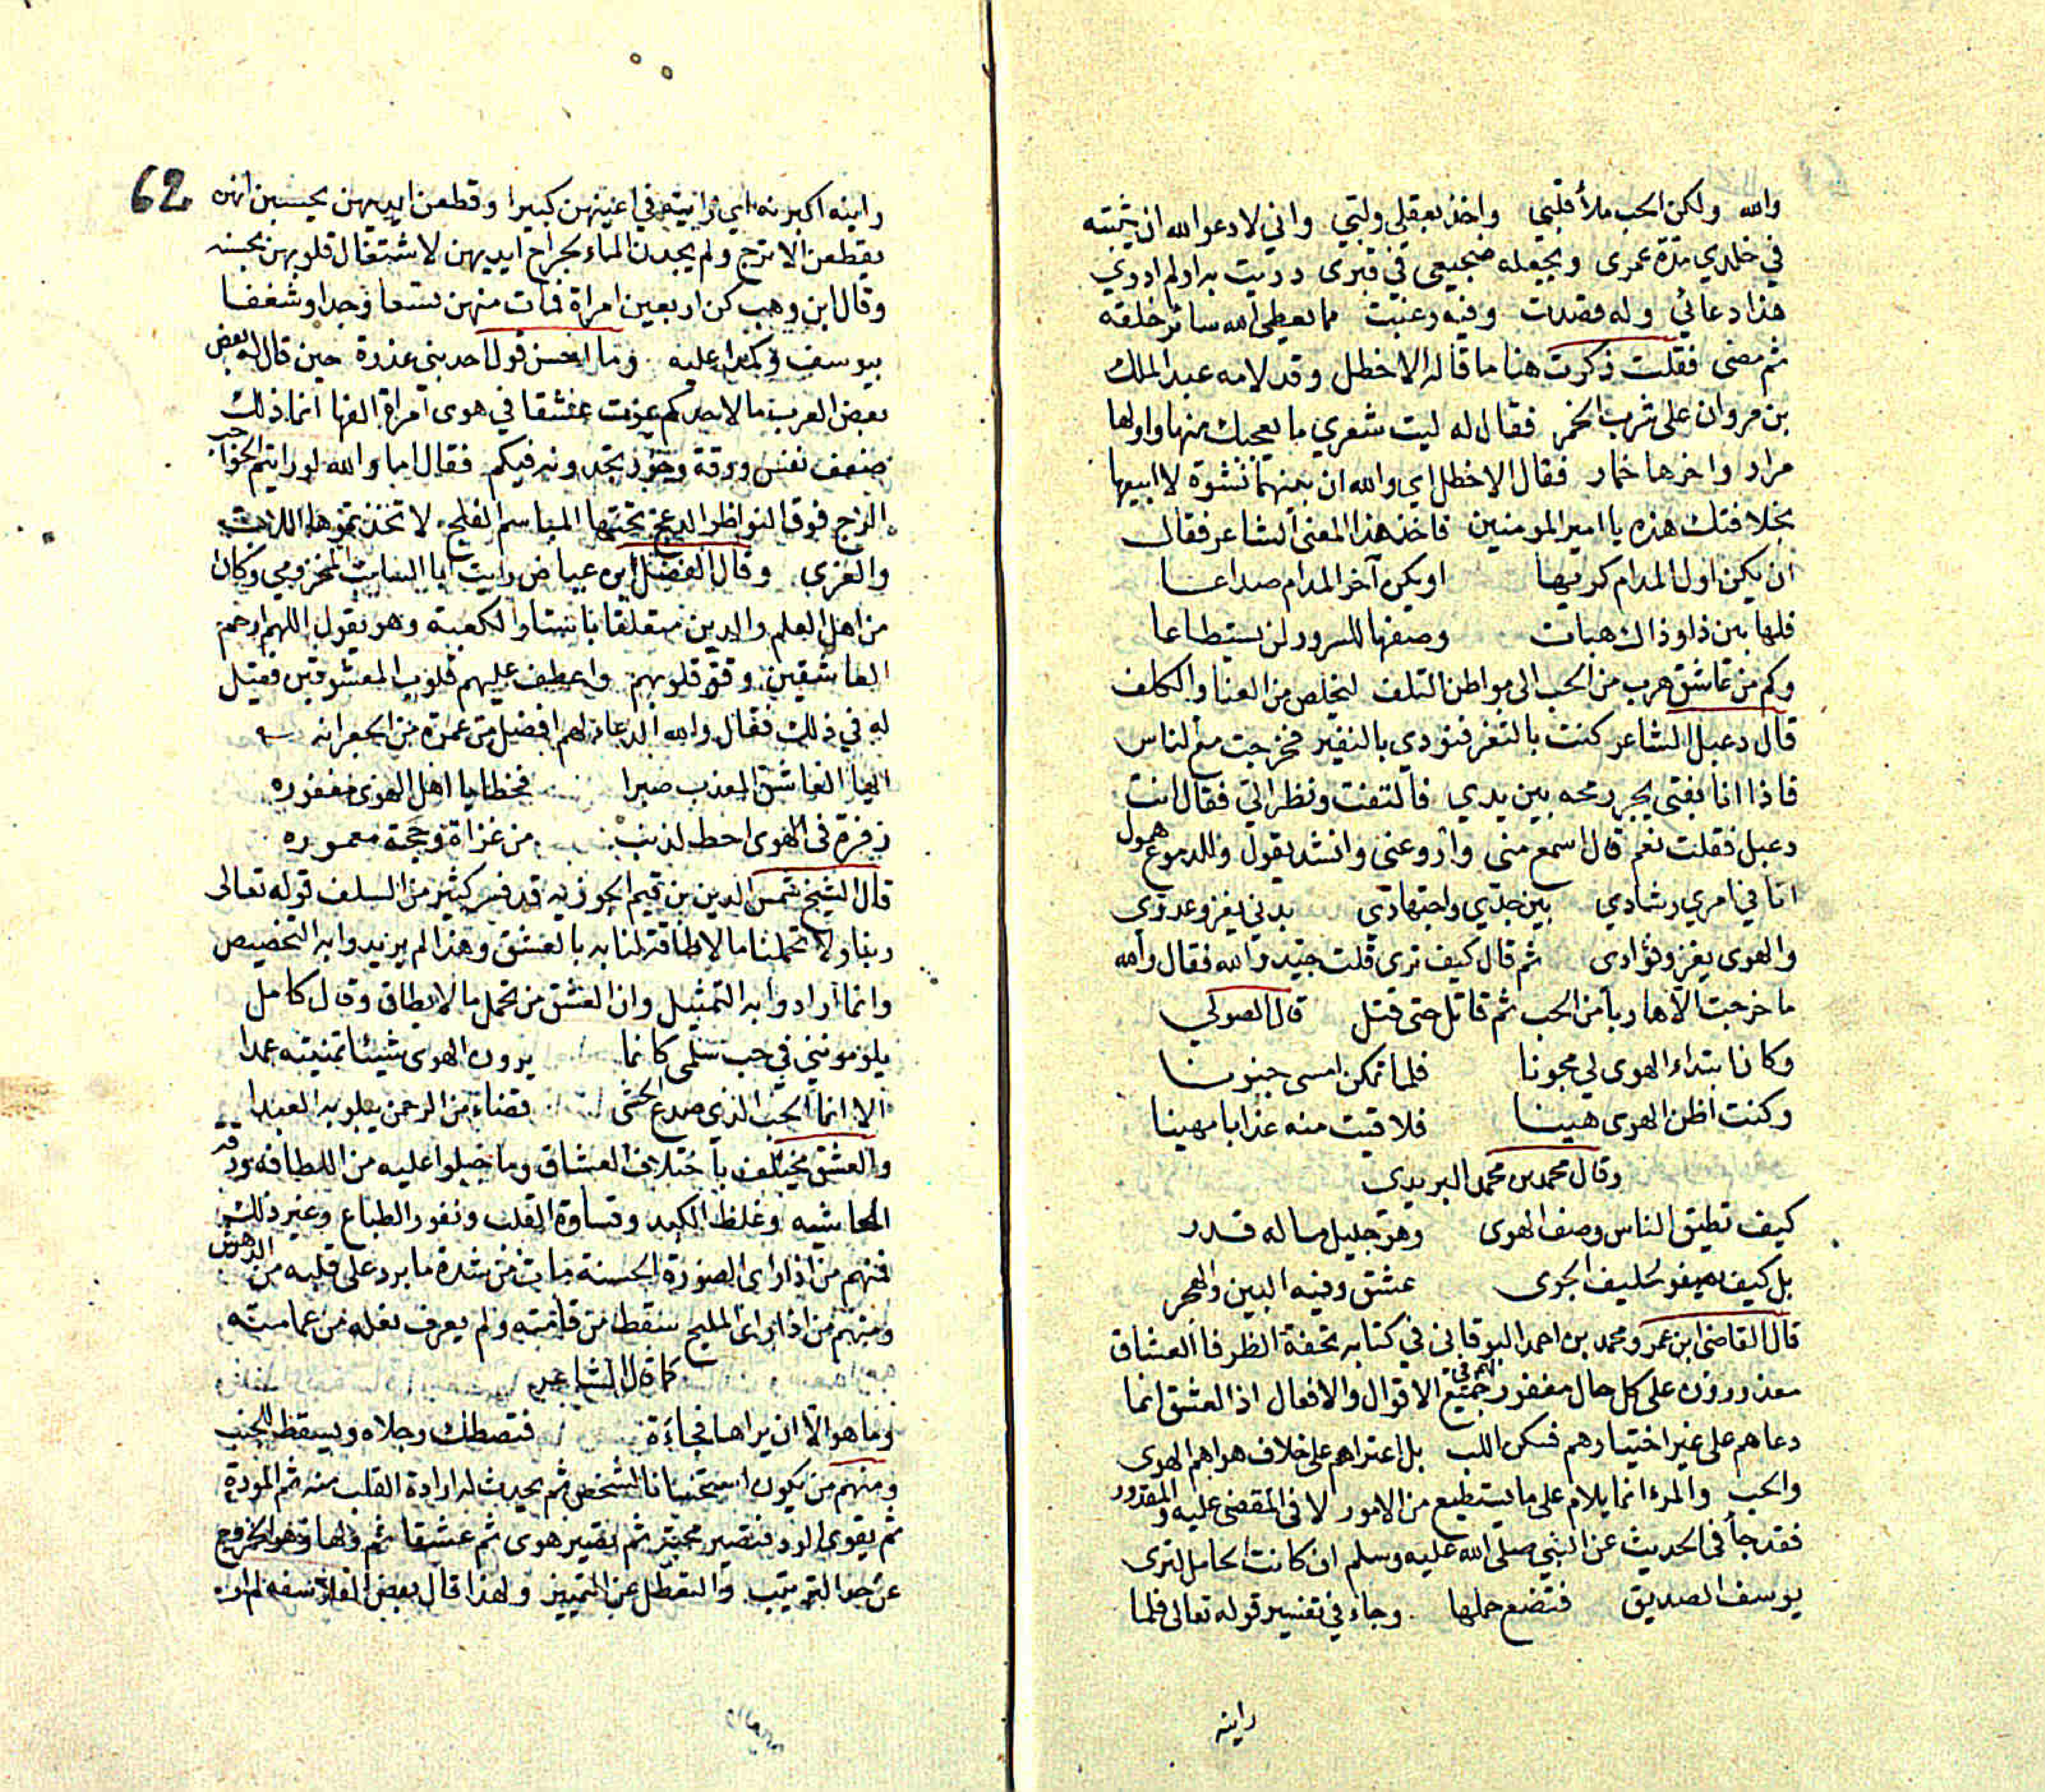 والله ولكن الحب ملأ قلبي واخذ بعقلي ولبي واني لادعو الله ان يثبته
في خلدي مدة عمري ويجعله ضجيعي في قبرى دريت به اولم ادري
هذا دعائي وله قصدت وفيه رغبت مما يعطي الله سائر خلقه
ثم مضى فقلت ذكرت هنا ما قاله الاخطل وقد لامه عبد الملك
بن مروان على شرب الخمر فقال له ليت شعري ما يعجبك منها واولها
مرار واخرها خمار فقال الاخطل اي والله ان بينهما نشوة لا ابيعها
بخلافتك هذه يا امير المومنين فاخذ هذا المعنى الشاعر فقال
ان يكن اول المدام كريها او يكن آخر المدام صداعا
فلها بين ذا وذاك هبات وصفها للسرور لن يستطاعا
وكم من عاشق هرب من الحب الى مواطن التلف ليخلص من العنا والكلف
قال دعبل الشاعر كنت بالثغر فنودي بالنفير فخرجت مع الناس
فاذا انا بفتى يجر رمحه بين يدي فالتفت ونظر الي فقال انت
دعبل فقلت نعم قال اسمع مني واروعني وانشد يقول وللدموع همول
انا في امري رشادي بين جدي واجتهادي بدني يغزو عدوي
والهوى يغزو فؤادى ثم قال كيف ترى قلت جيد والله فقال والله
ما خرجت الا هاربا من الحب ثم قاتل حتى قتل قال الصولي
وكان ابتداء الهوى لي مجونا فلما تمكن امسى جنونا
وكنت اظن الهوى هينا فلاقيت منه عذابا مهينا
وقال محمد بن محمد البريدي
كيف تطيق الناس وصف الهوى وهو جليل ماله قدر
بل كيف يصفو لحليف الجوى عشق وفيه البين والهجر
قال القاضى ابن عمرو محمد بن احمد البوقاني في كتابه تحفة الظرفا العشاق
معذورون على كل حال مغفور لهم في جميع الاقوال والافعال اذ العشق انما
دعاهم على غير اختيارهم فسكن اللب بل اعتراهم على خلاف هواهم الهوى
والحب والمرء انما يلام على ما يستطيع من الامور لا في المقضى عليه والمقدور
فقد جأ في الحديث عن النبي صلى الله عليه وسلم ان كانت الحامل لترى
يوسف الصديق فتضع حملها وجاء في تفسير قوله تعالى فلما
راينه
62
راينه اكبرنه اي رايته في اعينهن كبيرا وقطعن ايديهن يحسبن انهن
يقطعن الاترج ولم يجدن الماء بجراح ايديهن لاشتغال قلوبهن بحسنه
وقال ابن وهب كن اربعين امراة فمات منهن تسعا وجدا وشغفا
بيوسف وكمدا عليه وما احسن قول احد بني عذرة حين قال له بعض
بعض العرب ما لاحدكم يموت عشقا في هوى امراة الفها انما ذلك
ضعف نفس ورقة وخور تجدونه فيكم فقال اما والله لو رايتم الحواجب
الزج فوق النواظر الدعج تحتها المباسم الفلج لاتخذتموها اللات
والعزى وقال الفضل ابن عياض رايت ابا السايب المخزومي وكان
من اهل العلم والدين متعلقا باستار الكعبة وهو يقول اللهم ارحم
العاشقين وقو قلوبهم واعطف عليهم قلوب المعشوقين فقيل
له في ذلك فقال والله الدعاء لهم افضل من عمرة من الجعرانه
ايها العاشق المعذب صبرا فخطايا اهل الهوى مغفوره
زفرة في الهوى احط لذنب من غزاة وحجة معموره
قال الشيخ شمس الدين بن قيم الجوزيه قد فسر كثير من السلف قوله تعالى
ربنا ولا تحملنا ما لا طاقة لنا به بالعشق وهذا لم يريدوا به التخصيص
وانما ارادوا به التمثيل وان العشق من تحمل ما لا يطاق وقال كامل
يلومونني في حب سلمى كانما يرون الهوى شيئا تمنيته عمدا
الا انما الحب الذي صدع الحشى قضاء من الرحمن يبلو به العبدا
والعشق يختلف باختلاف العشاق وما جبلوا عليه من اللطافه ورقة
الحاشيه وغلظ الكبد وقساوة القلب ونفور الطباع وغير ذلك
فمنهم من اذا راى الصورة الحسنة مات من شدة ما يرد على قلبه من الدهش
ومنهم من اذا راى المليح سقط من قامته ولم يعرف نعله من عمامته
كما قال الشاعر
وما هو الا ان يراها فجاءة فتصطك رجلاه ويسقط للجنب
ومنهم من يكون استحسانا الشخص ثم يحدث له ارادة القلب منه ثم المودة
ثم يقوى الود فتصير محبة ثم يصير هوى ثم عشقا ثم ولها وهو الخروج
عن حد الترتيب والتعطل عن التمييز ولهذا قال بعض الفلاسفه لم ار